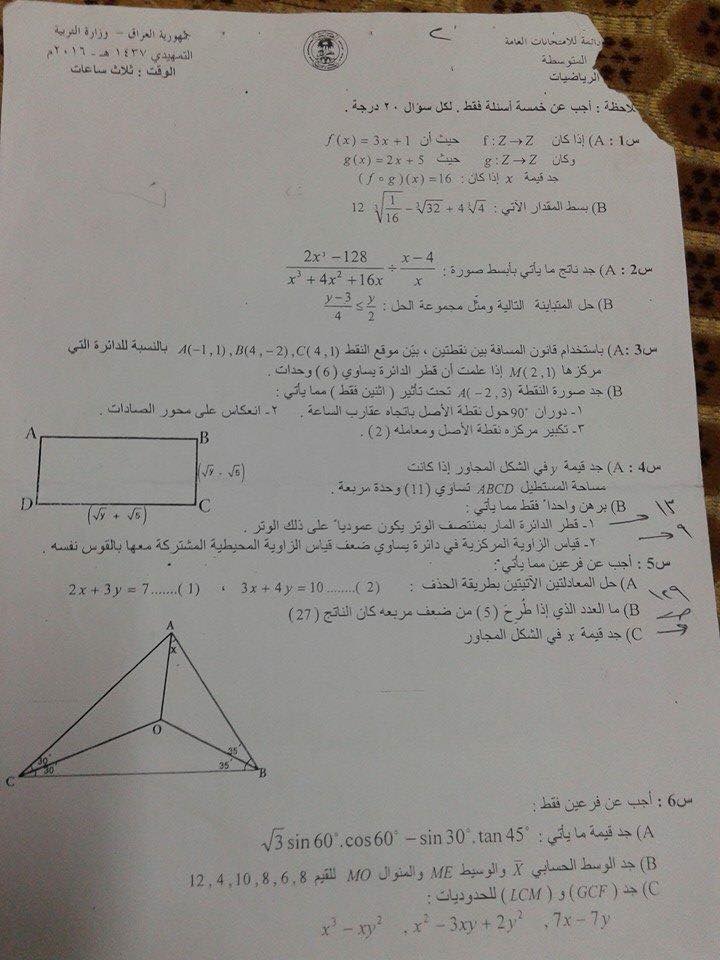 جمهورية العراق - وزارة التربية
التمهيدي ١٤٣٧ هـ - ٢٠١٦م
الوقت : ثلاث ساعات
٢
للامتحانات العامة
المتوسطة
الرياضيات
لاحظة : أجب عن خمسة أسئلة فقط . لكل سؤال ٢٠ درجة .
س1 : A) إذا كان f : Z → Z حيث أن f (x) = 3x + 1
وكان g : Z → Z حيث g(x) = 2x + 5
جد قيمة x إذا كان : (f ∘ g)(x) = 16
B) بسط المقدار الآتي : 12 ∛(1/16) − ∛32 + 4 ∛4
س2 : A) جد ناتج ما يأتي بأبسط صورة : (2x³ − 128)/(x³ + 4x² + 16x) ÷ (x − 4)/x
B) حل المتباينة التالية ومثّل مجموعة الحل : (y − 3)/4 ≤ y/2
س3 : A) باستخدام قانون المسافة بين نقطتين ، بيّن موقع النقط A(−1, 1) , B(4, −2) , C(4, 1) بالنسبة للدائرة التي
مركزها M(2, 1) إذا علمت أن قطر الدائرة يساوي (6) وحدات .
B) جد صورة النقطة A(−2, 3) تحت تأثير ( اثنين فقط ) مما يأتي :
١- دوران 90° حول نقطة الأصل باتجاه عقارب الساعة . ٢- انعكاس على محور الصادات .
٣- تكبير مركزه نقطة الأصل ومعامله (2) .
س4 : A) جد قيمة y في الشكل المجاور إذا كانت
مساحة المستطيل ABCD تساوي (11) وحدة مربعة .
A
B
(√y - √5)
D
C
(√y + √5)
B) برهن واحداً فقط مما يأتي :
١٣
١- قطر الدائرة المار بمنتصف الوتر يكون عمودياً على ذلك الوتر .
٩
٢- قياس الزاوية المركزية في دائرة يساوي ضعف قياس الزاوية المحيطية المشتركة معها بالقوس نفسه .
س5 : أجب عن فرعين مما يأتي :
A) حل المعادلتين الآتيتين بطريقة الحذف : 3x + 4y = 10 .......( 2 ) ، 2x + 3y = 7 .......( 1 )
١٢٩
B) ما العدد الذي إذا طُرِحَ (5) من ضعف مربعه كان الناتج (27)
C) جد قيمة x في الشكل المجاور
A
x
O
30°
30°
35°
35°
C
B
س6 : أجب عن فرعين فقط :
A) جد قيمة ما يأتي : √3 sin 60° .cos 60° − sin 30° .tan 45°
B) جد الوسط الحسابي X̄ والوسيط ME والمنوال MO للقيم 12 , 4 , 10 , 8 , 6 , 8
C) جد (GCF) و (LCM) للحدوديات :
x³ − xy² , x² − 3xy + 2y² , 7x − 7y